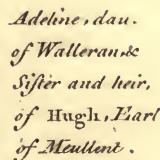 Adeline, dau.
of Walleran, &
Sister and heir,
of Hugh, Earl
of Meullent.